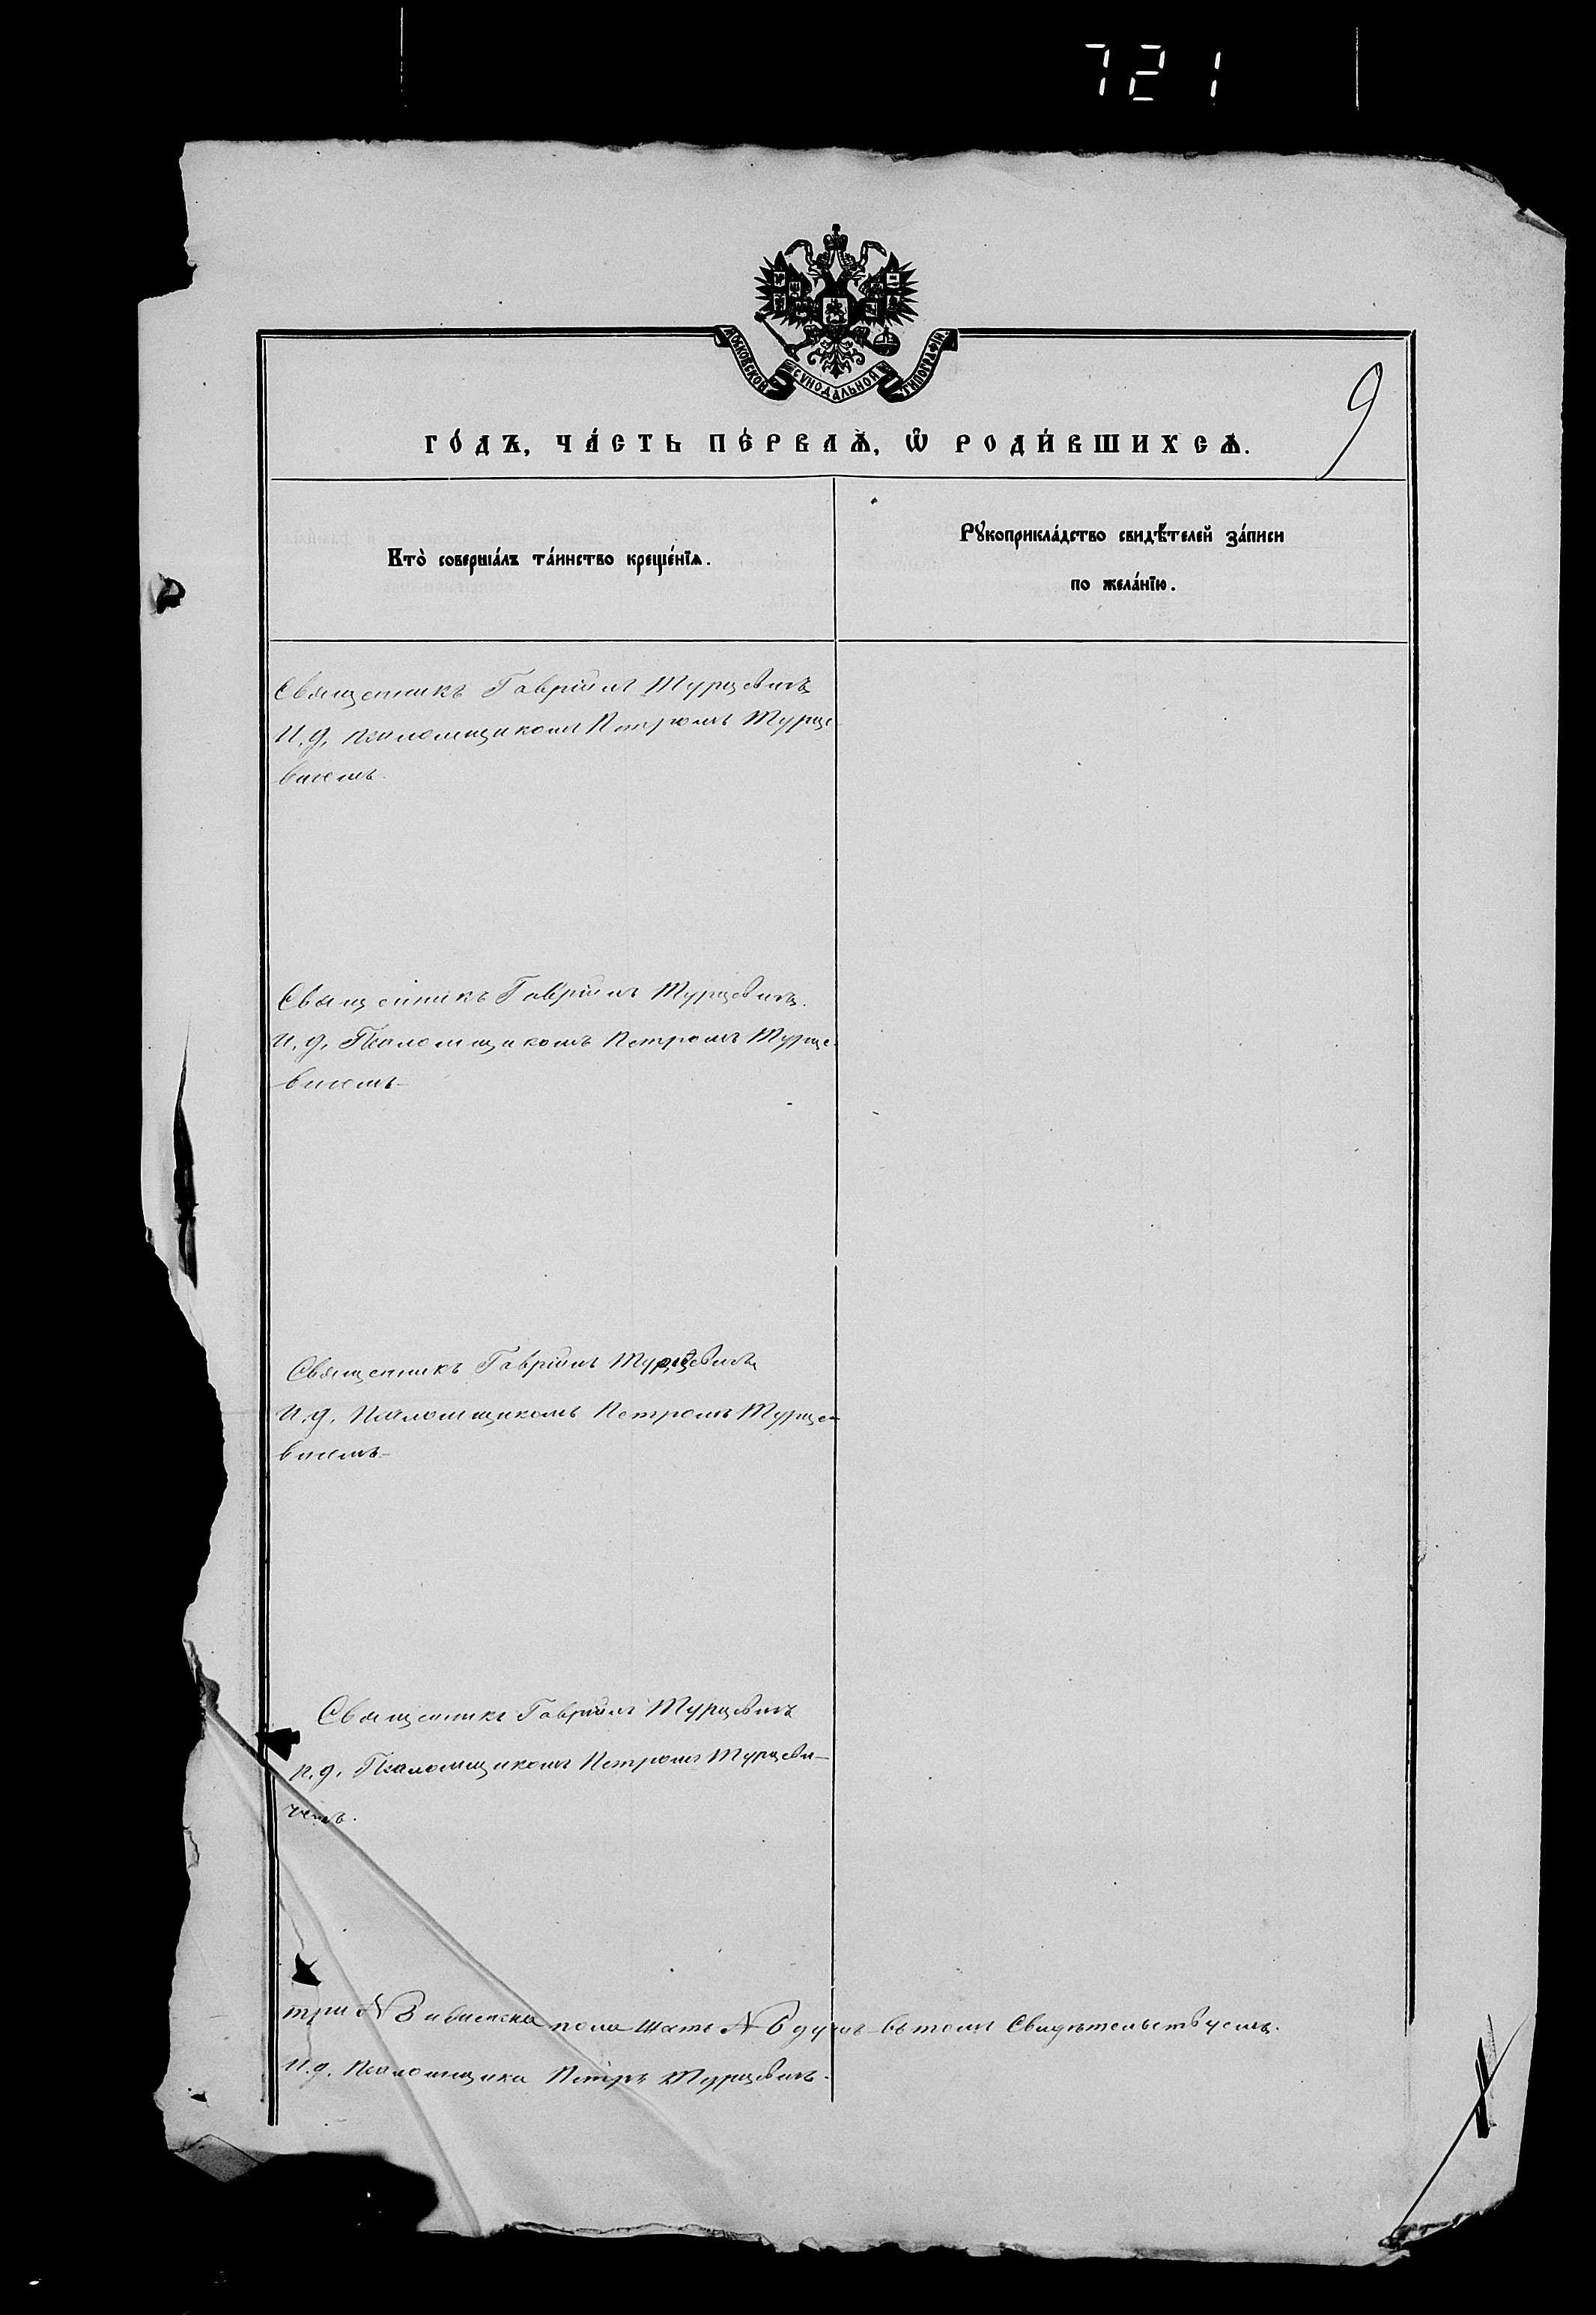 721
МОСКОВСКОЙ СѴНОДАЛЬНОЙ ТИПОГРАФІИ
9
ГО́ДЪ, ЧА́СТЬ ПЕ́РВАѦ, Ѡ҆ РОДИ́ВШИХСѦ.
Кто̀ соверша́лъ та́инство креще́нїѧ.
Рꙋкоприкла́дство свидѣ́телей за́писи
по жела́нїю.
Священникъ Гавріилъ Турцевичъ
И. д. псаломщикомъ Петромъ Турце-
вичемъ.
Священникъ Гавріилъ Турцевичъ.
И. д. Псаломщикомъ Петромъ Турце-
вичемъ-
Священникъ Гавріилъ Турцевичъ
И. д. Псаломщикомъ Петромъ Турце-
вичемъ-
Священникъ Гавріилъ Турцевичъ
И. д. Псаломщикомъ Петромъ Турцеви-
чемъ.
три №3 и женска пола шесть №6 душъ въ томъ Свидѣтельствуемъ.
И. д. Псаломщика Петръ Турцевичъ.